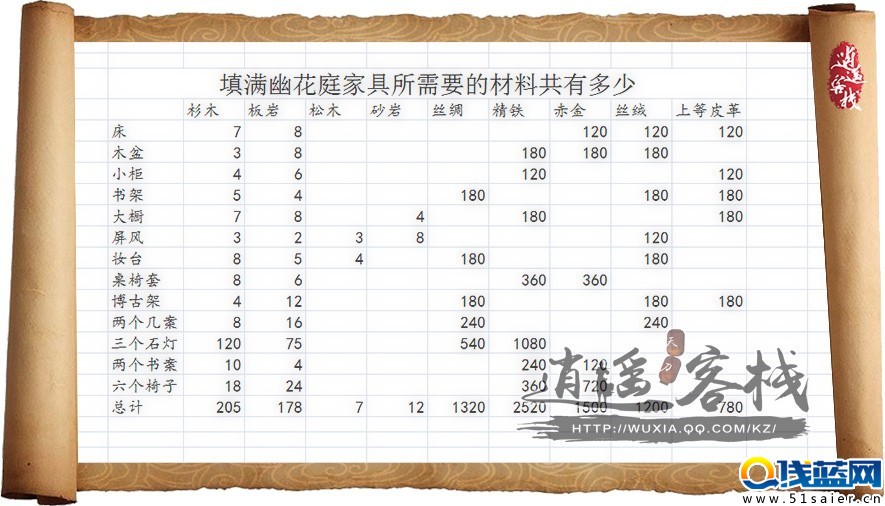 填满幽花庭家具所需要的材料共有多少
杉木 板岩 松木 砂岩 丝绸 精铁 赤金 丝绒 上等皮革
床 7 8 120 120 120
木盆 3 8 180 180 180
小柜 4 6 120 120
书架 5 4 180 180 180
大橱 7 8 4 180 180
屏风 3 2 3 8 120
妆台 8 5 4 180 180
桌椅套 8 6 360 360
博古架 4 12 180 180 180
两个几案 8 16 240 240
三个石灯 120 75 540 1080
两个书案 10 4 240 120
六个椅子 18 24 360 720
总计 205 178 7 12 1320 2520 1500 1200 780
逍遥客栈
天刀
逍遥客栈
HTTP://WUXIA.QQ.COM/KZ/
浅蓝网
www.51saier.cn